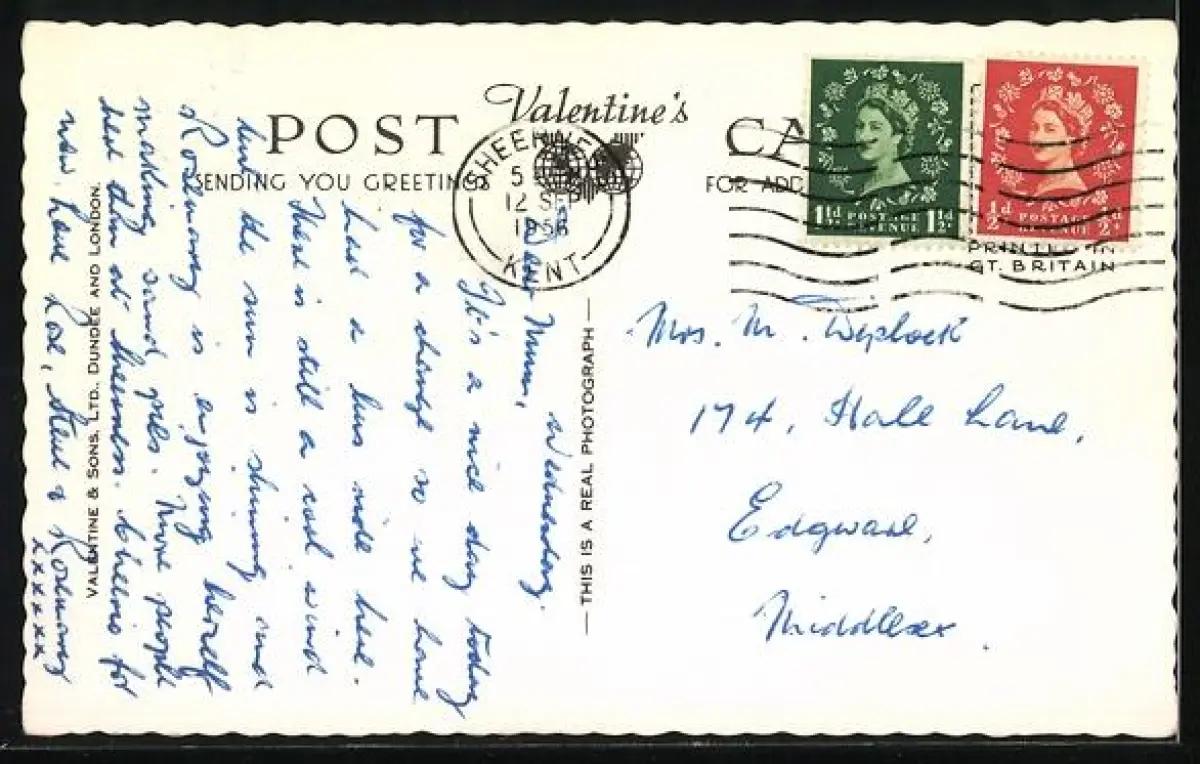 Valentine's
POST CA
SENDING YOU GREETINGS
FOR ADD
PRINTED IN
GT. BRITAIN
SHEERNESS
5
12 SEP
1956
KENT
1½d POSTAGE 1½d
REVENUE
½d POSTAGE ½d
REVENUE
Wednesday.
Dear Mum,
It's a nice day today
for a change so we have
had a bus ride here.
There is still a cool wind
but the sun is shining and
Rosemary is enjoying herself
making sand pies. More people
here than at Sheerness. Cheerio for
now. Love Rose, & Rosemary
xxxxx
THIS IS A REAL PHOTOGRAPH
VALENTINE & SONS, LTD. DUNDEE AND LONDON.
Mrs. M.
174, Hale Lane,
Edgware,
Middlesex.